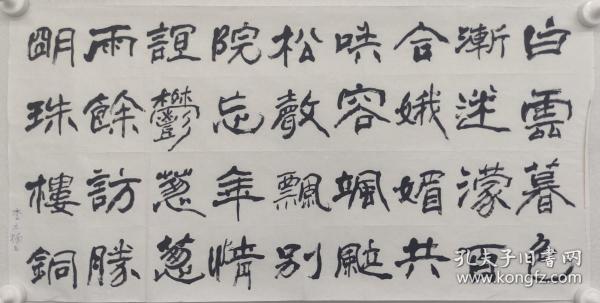 白雲暮色
漸迷濛百
合娥媚共
咲容颯䬃
松聲飄別
院忘年情
誼鬱蔥蔥
雨餘訪勝
明珠樓銅
孔夫子旧书网
www.kongfz.com